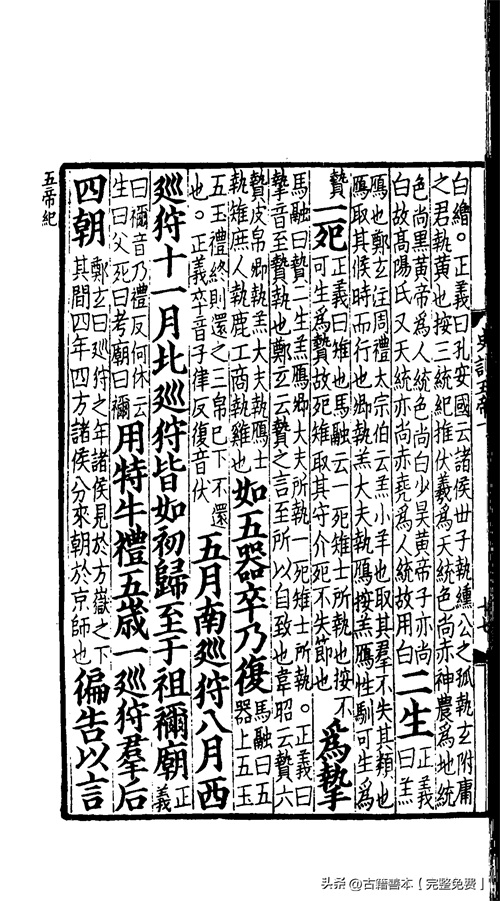 白繒。正義曰孔安國云諸侯世子執纁公之孤執玄附庸
之君執黃也按三統紀推伏羲爲天統色尚赤神農爲地統
色尚黑黃帝爲人統色尚白少昊黃帝子亦尚
白故高陽氏又天統亦尚赤堯爲人統故用白
二生
正義
曰羔
鴈也鄭玄注周禮大宗伯云羔小羊也取其羣不失其類也
鴈取其候時而行也卿執羔大夫執鴈按羔鴈性馴可生爲
贄
一死
正義曰雉也馬融云一死雉士所執也按不
可生爲贄故死雉取其守介死不失節也
爲摯
馬融曰贄二生羔鴈卿大夫所執一死雉士所執。正義曰
摯音至贄執也鄭玄云贄之言至所以自致也韋昭云贄六
贄皮帛卿執羔大夫執鴈士
執雉庶人執鹿工商執雞也
如五器卒乃復
馬融曰五
器上五玉
五玉禮終則還之三帛已下不還
也。正義卒音子律反復音伏
五月南廵狩八月西
廵狩十一月北廵狩皆如初歸至于祖禰廟
正
義
曰禰音乃禮反何休云
生曰父死曰考廟曰禰
用特牛禮五歲一廵狩羣后
四朝
鄭玄曰廵狩之年諸侯見於方嶽之下
其間四年四方諸侯分來朝於京師也
徧告以言
五帝紀
头条 @古籍善本【完整免费】